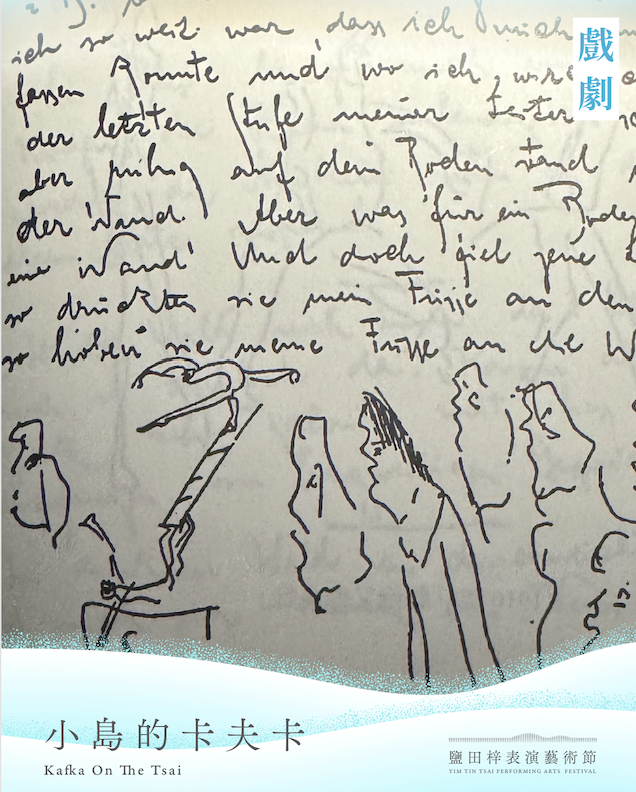 ich so weit war, dass ich mich
fassen konnte und wo ich, wie
der letzten Stufe meiner Leiter
aber ruhig auf dem Boden stand
der Wand. Aber was für ein Boden
eine Wand! Und doch fiel jene
so drückten sie meine Füsse an den
so hoben sie meine Füsse an die W
戲劇
小島的卡夫卡
Kafka On The Tsai
鹽田梓表演藝術節
YIM TIN TSAI PERFORMING ARTS FESTIVAL